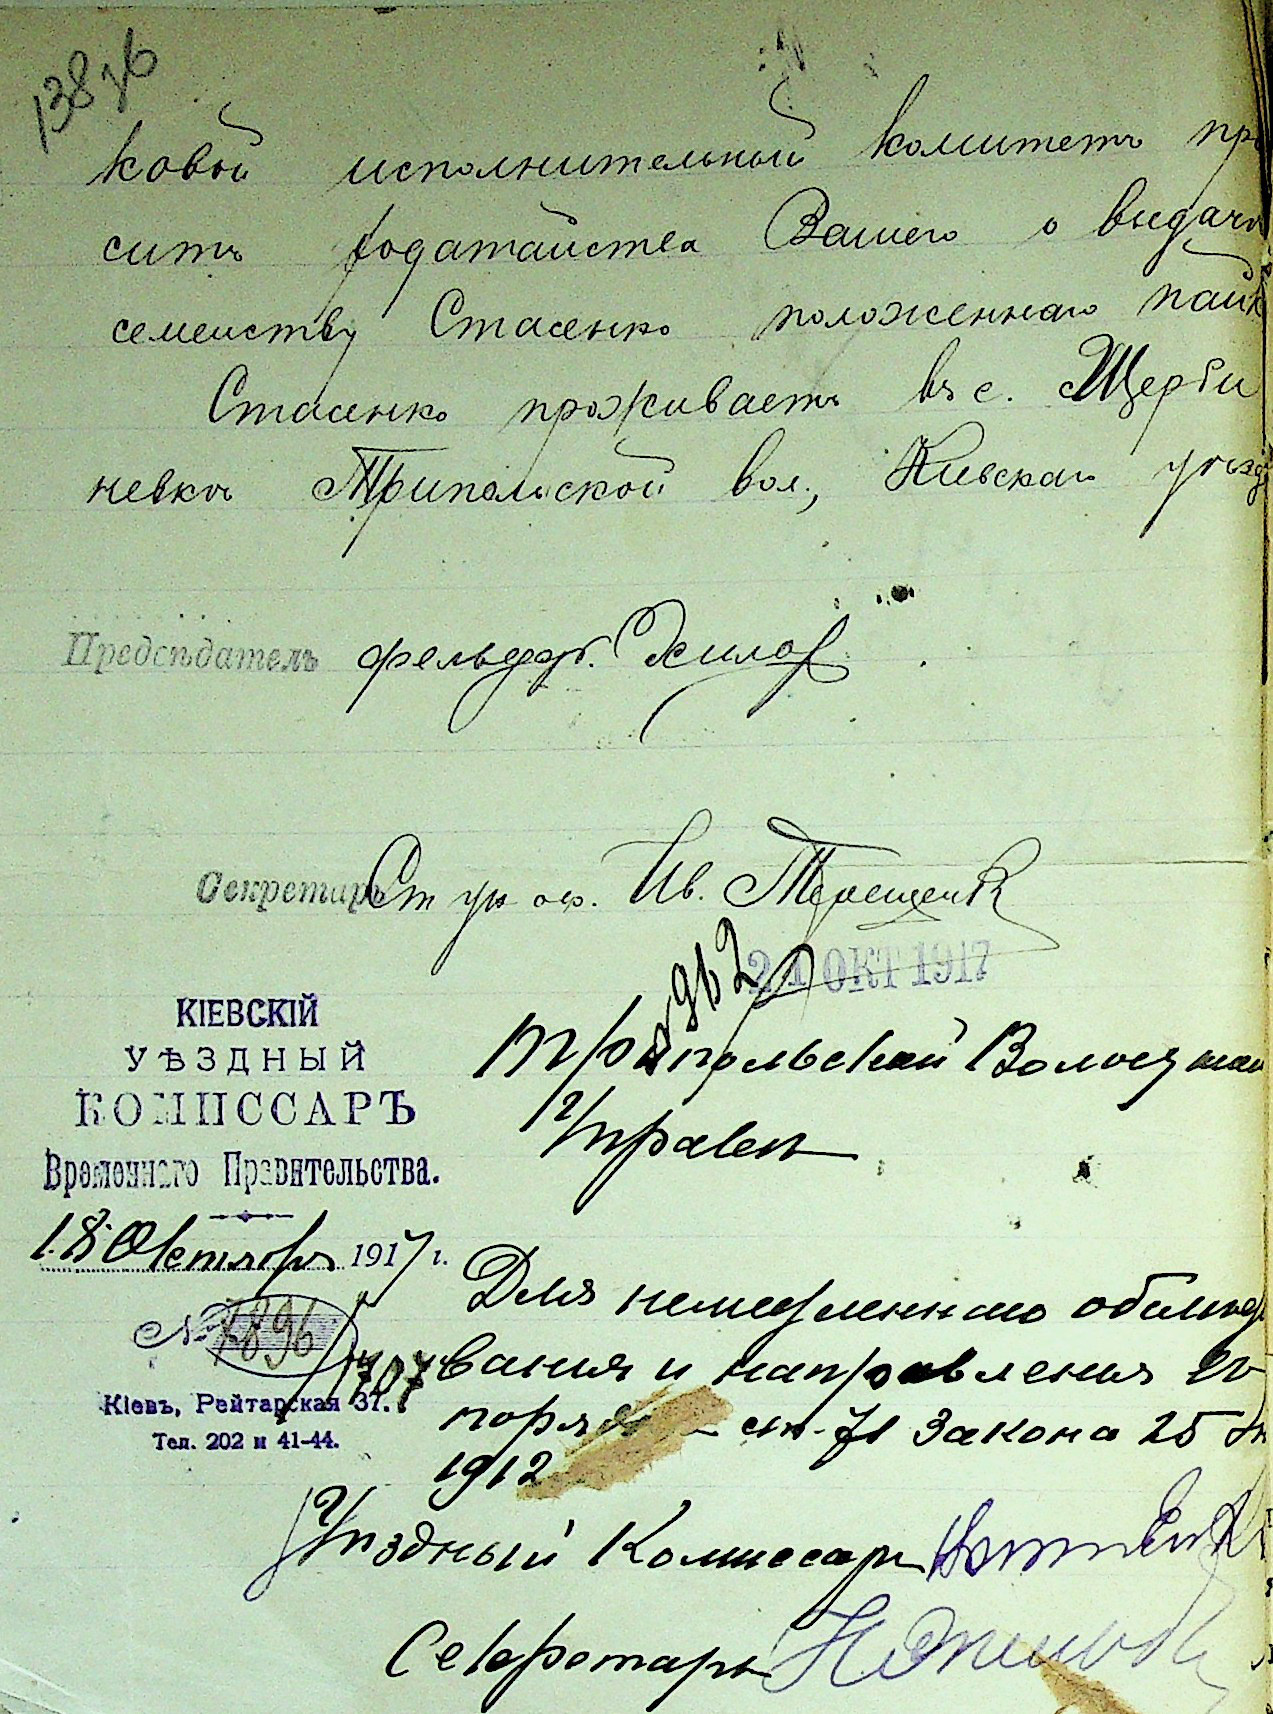 138
ковой исполнительный комитетъ про
ситъ ходатайства Вашего о выдачѣ
семейству Стасенко положеннаго пайк
Стасенко проживаетъ въ с. Щерби
невкѣ Трипольской вол., Киевскаго уѣзд
Предсѣдатель фельдф.
Секретарь Ст. ун. оф. Ив. Терещенк
21 ОКТ 1917
КІЕВСКІЙ
УѢЗДНЫЙ
КОМИССАРЪ
Временнаго Правительства.
18 Октября 1917 г.
№ 7896
Кіевъ, Рейтарская 37.
Тел. 202 и 41-44.
Трипольской Волостной
Управѣ
Для немедленнаго обслѣдо
ванія и направленія въ
порядкѣ ст. 71 Закона 25 Ін
1912
Уѣздный Комиссаръ
Секретарь